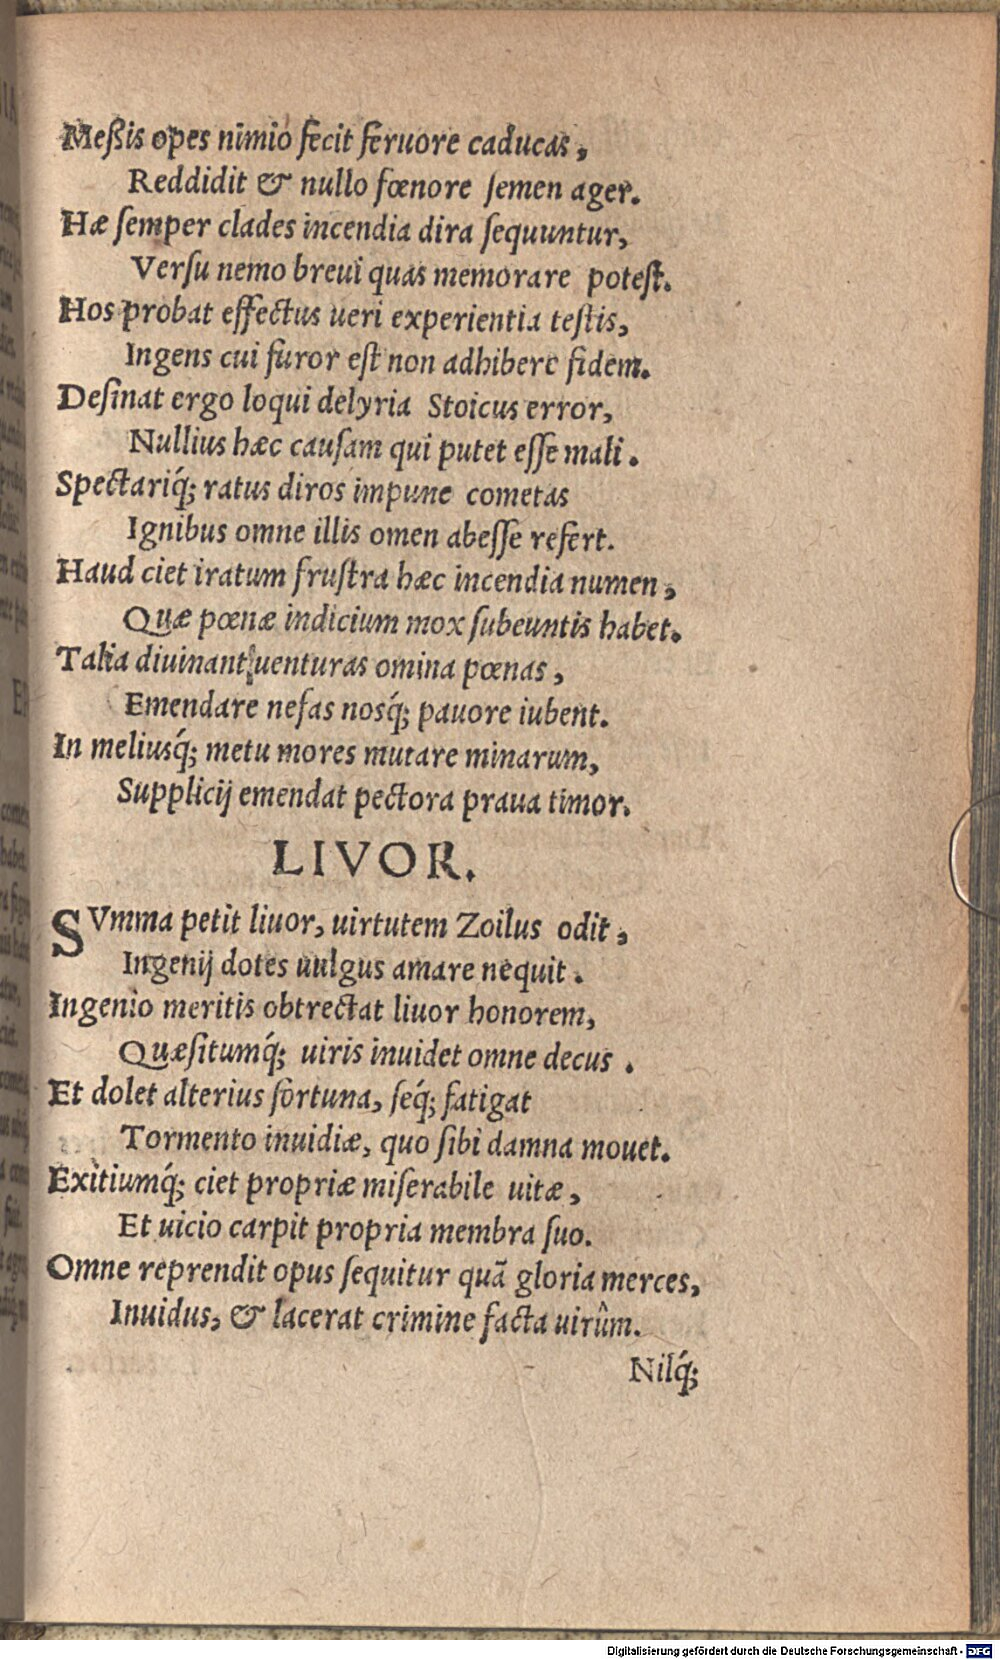 Meßis opes nimio fecit feruore caducas,
Reddidit & nullo fœnore semen ager.
Hæ semper clades incendia dira sequuntur,
Versu nemo breui quas memorare potest.
Hos probat effectus ueri experientia testis,
Ingens cui furor est non adhibere fidem.
Desinat ergo loqui delyria Stoicus error,
Nullius hæc causam qui putet esse mali.
Spectariq́; ratus diros impune cometas
Ignibus omne illis omen abesse refert.
Haud ciet iratum frustra hæc incendia numen,
Quæ pœnæ indicium mox subeuntis habet.
Talia diuinant uenturas omina pœnas,
Emendare nefas nosq́; pauore iubent.
In meliusq́; metu mores mutare minarum,
Supplicij emendat pectora praua timor.
LIVOR.
SVmma petit liuor, uirtutem Zoilus odit,
Ingenij dotes uulgus amare nequit.
Ingenio meritis obtrectat liuor honorem,
Quæsitumq́; uiris inuidet omne decus.
Et dolet alterius fortuna, seq́; fatigat
Tormento inuidiæ, quo sibi damna mouet.
Exitiumq́; ciet propriæ miserabile uitæ,
Et uicio carpit propria membra suo.
Omne reprendit opus sequitur quã gloria merces,
Inuidus, & lacerat crimine facta uirûm.
Nilq́;
Digitalisierung gefördert durch die Deutsche Forschungsgemeinschaft - DFG